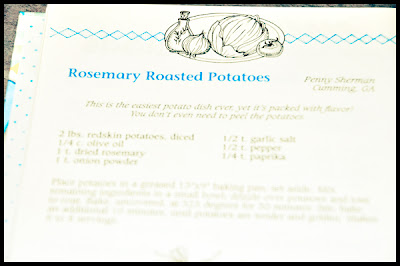 Rosemary Roasted Potatoes
Penny Sherman
Cumming, GA
This is the easiest potato dish ever, yet it's packed with flavor!
You don't even need to peel the potatoes.
2 lbs. redskin potatoes, diced
1/4 c. olive oil
1 t. dried rosemary
1 t. onion powder
1/2 t. garlic salt
1/2 t. pepper
1/4 t. paprika
Place potatoes in a greased 13"x9" baking pan; set aside. Mix
remaining ingredients in a small bowl; drizzle over potatoes and toss
to coat. Bake, uncovered, at degrees for minutes.
an additional 10 minutes, until potatoes are tender and golden. Makes
servings.